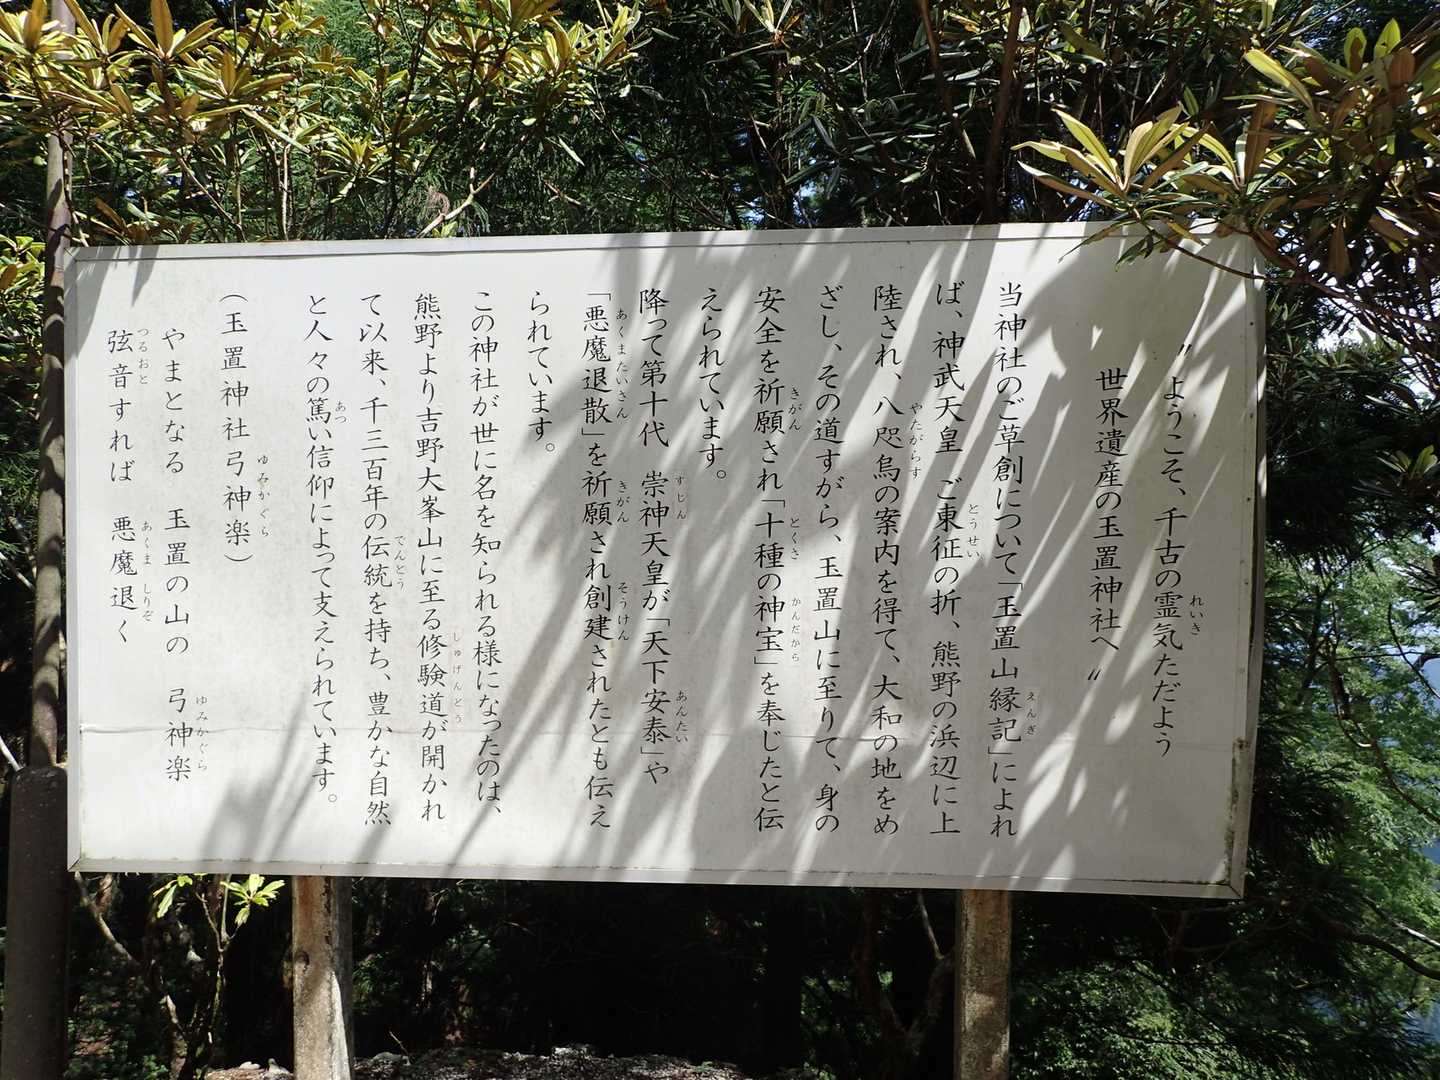 〝ようこそ、千古の霊気ただよう
世界遺産の玉置神社へ〟
当神社のご草創について「玉置山縁記」によれ
ば、神武天皇　ご東征の折、熊野の浜辺に上
陸され、八咫烏の案内を得て、大和の地をめ
ざし、その道すがら、玉置山に至りて、身の
安全を祈願され「十種の神宝」を奉じたと伝
えられています。
降って第十代　崇神天皇が「天下安泰」や
「悪魔退散」を祈願され創建されたとも伝え
られています。
この神社が世に名を知られる様になったのは、
熊野より吉野大峯山に至る修験道が開かれ
て以来、千三百年の伝統を持ち、豊かな自然
と人々の篤い信仰によって支えられています。
（玉置神社弓神楽）
やまとなる　玉置の山の　弓神楽
弦音すれば　悪魔退く